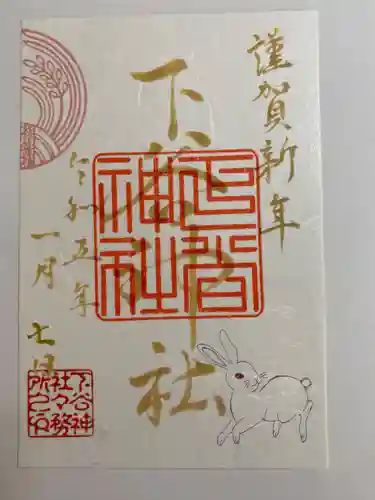 謹賀新年
下谷神社
令和五年
一月七日
下谷神社
下谷神
社々務
所之印